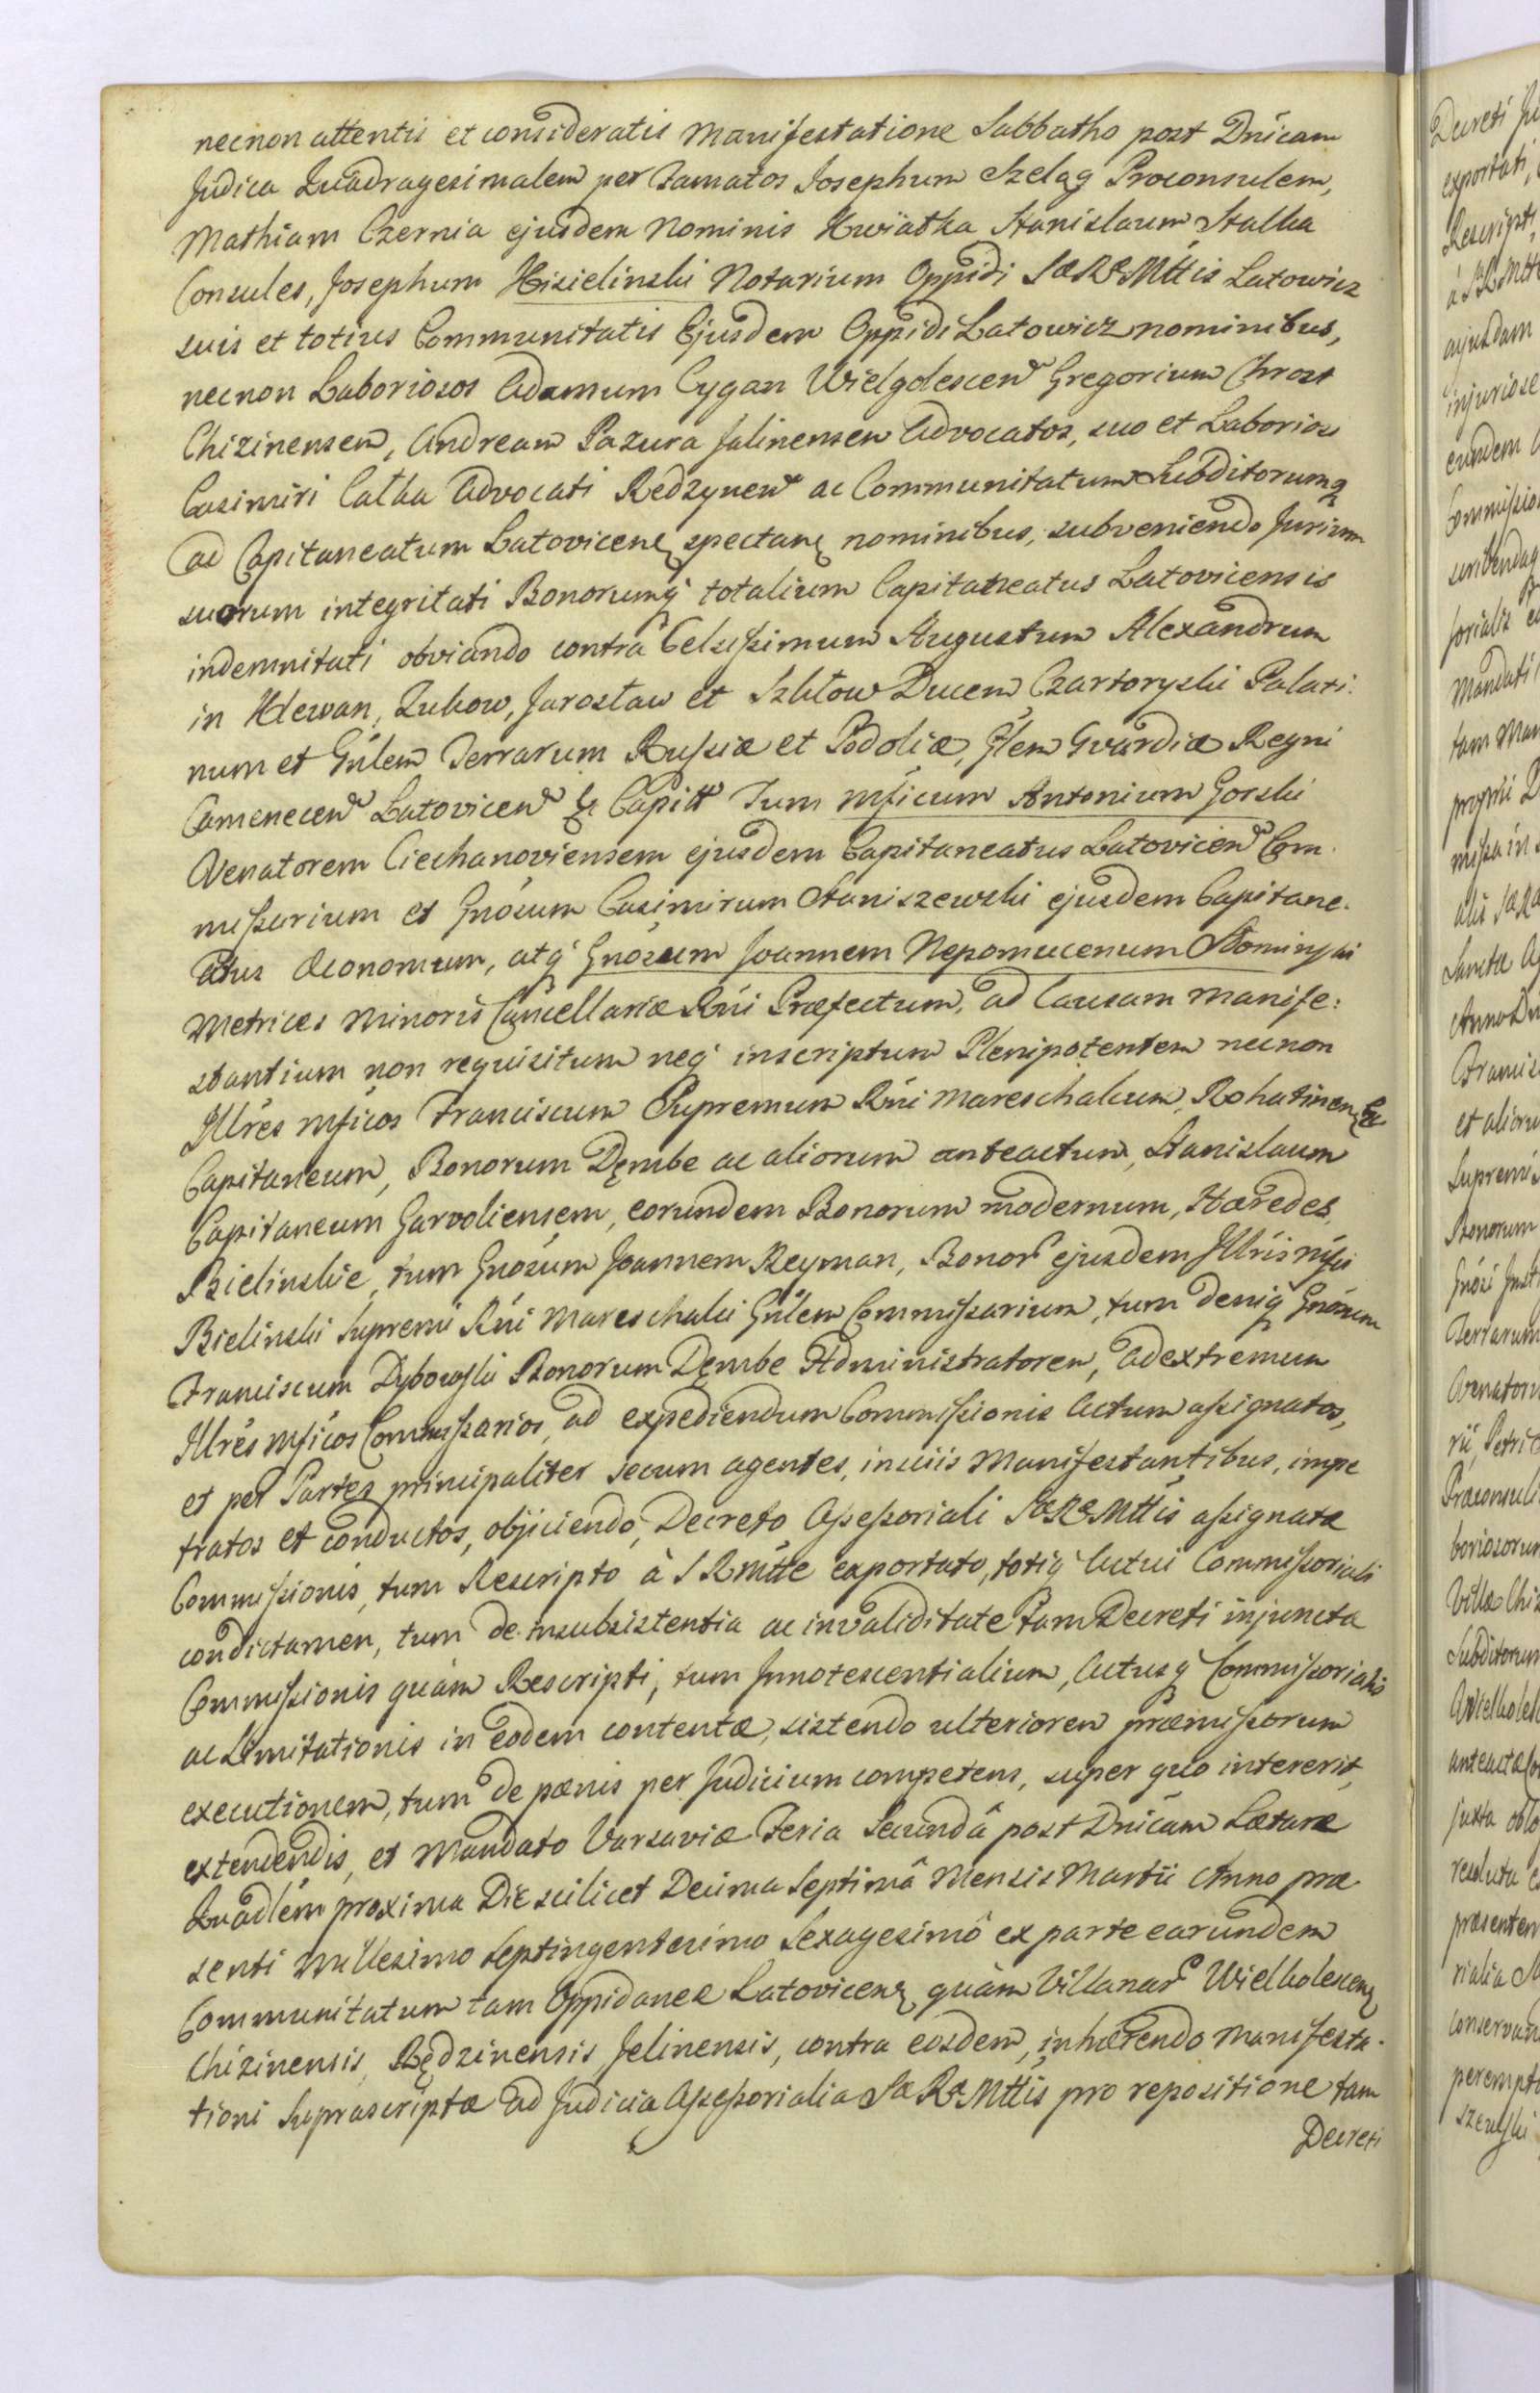 necnon attentis et consideratis Manifestatione Sabbatho post Dnicam
Judica Quadragesimalem per Famatos Josephum Szeląg Proconsulem,
Mathiam Czernia ejusdem Nominis Kwiatka Stanislaum Stalka
Consules, Josephum Kisielinski Notarium Oppidi SæRæMttis Latowicz
suis et totius Communitatis Ejusdem Oppidi Latowicz nominibus,
necnon Laboriosos Adamum Cygan Wielgolescen Gregorium Chrost
Chizinensem, Andream Pazura Jalinensem Advocatos, suo et Laboriosi
Casimiri Catka Advocati Redzynen ac Communitatum Subditorumq
ad Capitaneatum Latovicens spectan nominibus, subveniendo Jurium
suorum integritati Bonorumq totalium Capitaneatus Latovicensis
indemnitati obviando contra Celsissimum Augustum Alexandrum
in Klewan, Zukow, Jarosław et Szkłow Ducem Czartoryski Palati:
num et Gnlem Terrarum Russiæ et Podoliæ, Glem Gvardiæ Regni
Camenecen Latovicen & Capitt Tum Mficum Antonium Gorski
Venatorem Ciechanoviensem ejusdem Capitaneatus Latovicen Com-
missarium et Gnosum Casimirum Staniszewski ejusdem Capitane-
atus Œconomum, atq Gnosum Joannem Nepomucenum Słominski
Metrices Minoris Cancellariæ Rni Præfectum, ad Causam Manife:
stantium non requisitum neq inscriptum Plenipotentem necnon
Illres Mficos Franciscum Supremum Rni Mareschalcum, Rohatinen &
Capitaneum, Bonorum Dęmbe ac aliorum anteactum, Stanislaum
Capitaneum Garvoliensem, eorundem Bonorum modernum, Hæredes,
Bielinskie, tum Gnosum Joannem Reyman, Bonor ejusdem Illris Mfci
Bielinski Supremi Rni Mareschalci Gnlem Commissarium, tum deniq Gnosum
Franciscum Dybowski Bonorum Dęmbe Administratorem, ad extremum
Illres Mficos Commissarios, ad expediendum Commissionis Actum assignatos,
et per Partes principaliter secum agentes, insciis Manifestantibus, impe
tratos et conductos, objiciendo, Decreto Assessoriali SæRæMttis assignatæ
Commissionis, tum Rescripto à S R Mtte exportato, totiq Actui Commissoriali
condictamen, tum de insubsistentia ac invaliditate tam Decreti injunctæ
Commissionis quàm Rescripti, tum Innotescentialium, Actusq Commissorialis
ac Limitationis in eodem contentæ, sistendo ulteriorem præmissorum
executionem, tum de pænis per Judicium competens, super quo intererit,
extendendis, et Mandato Varsaviæ Feria Secundâ post Dnicam Lætare
Quadlem proxima Die scilicet Decima Septimâ Mensis Martii Anno præ-
senti Millesimo Septingentesimo Sexagesimô ex parte earundem
Communitatum tam Oppidaneæ Latovicens quàm Villanar Wielkolescens
Chizinensis, Rędzinensis Jelinensis, contra eosdem, inhærendo Manifesta-
tioni Suprascriptæ ad Judicia Assessorialia SæRæMttis pro repositione tam
Decreti